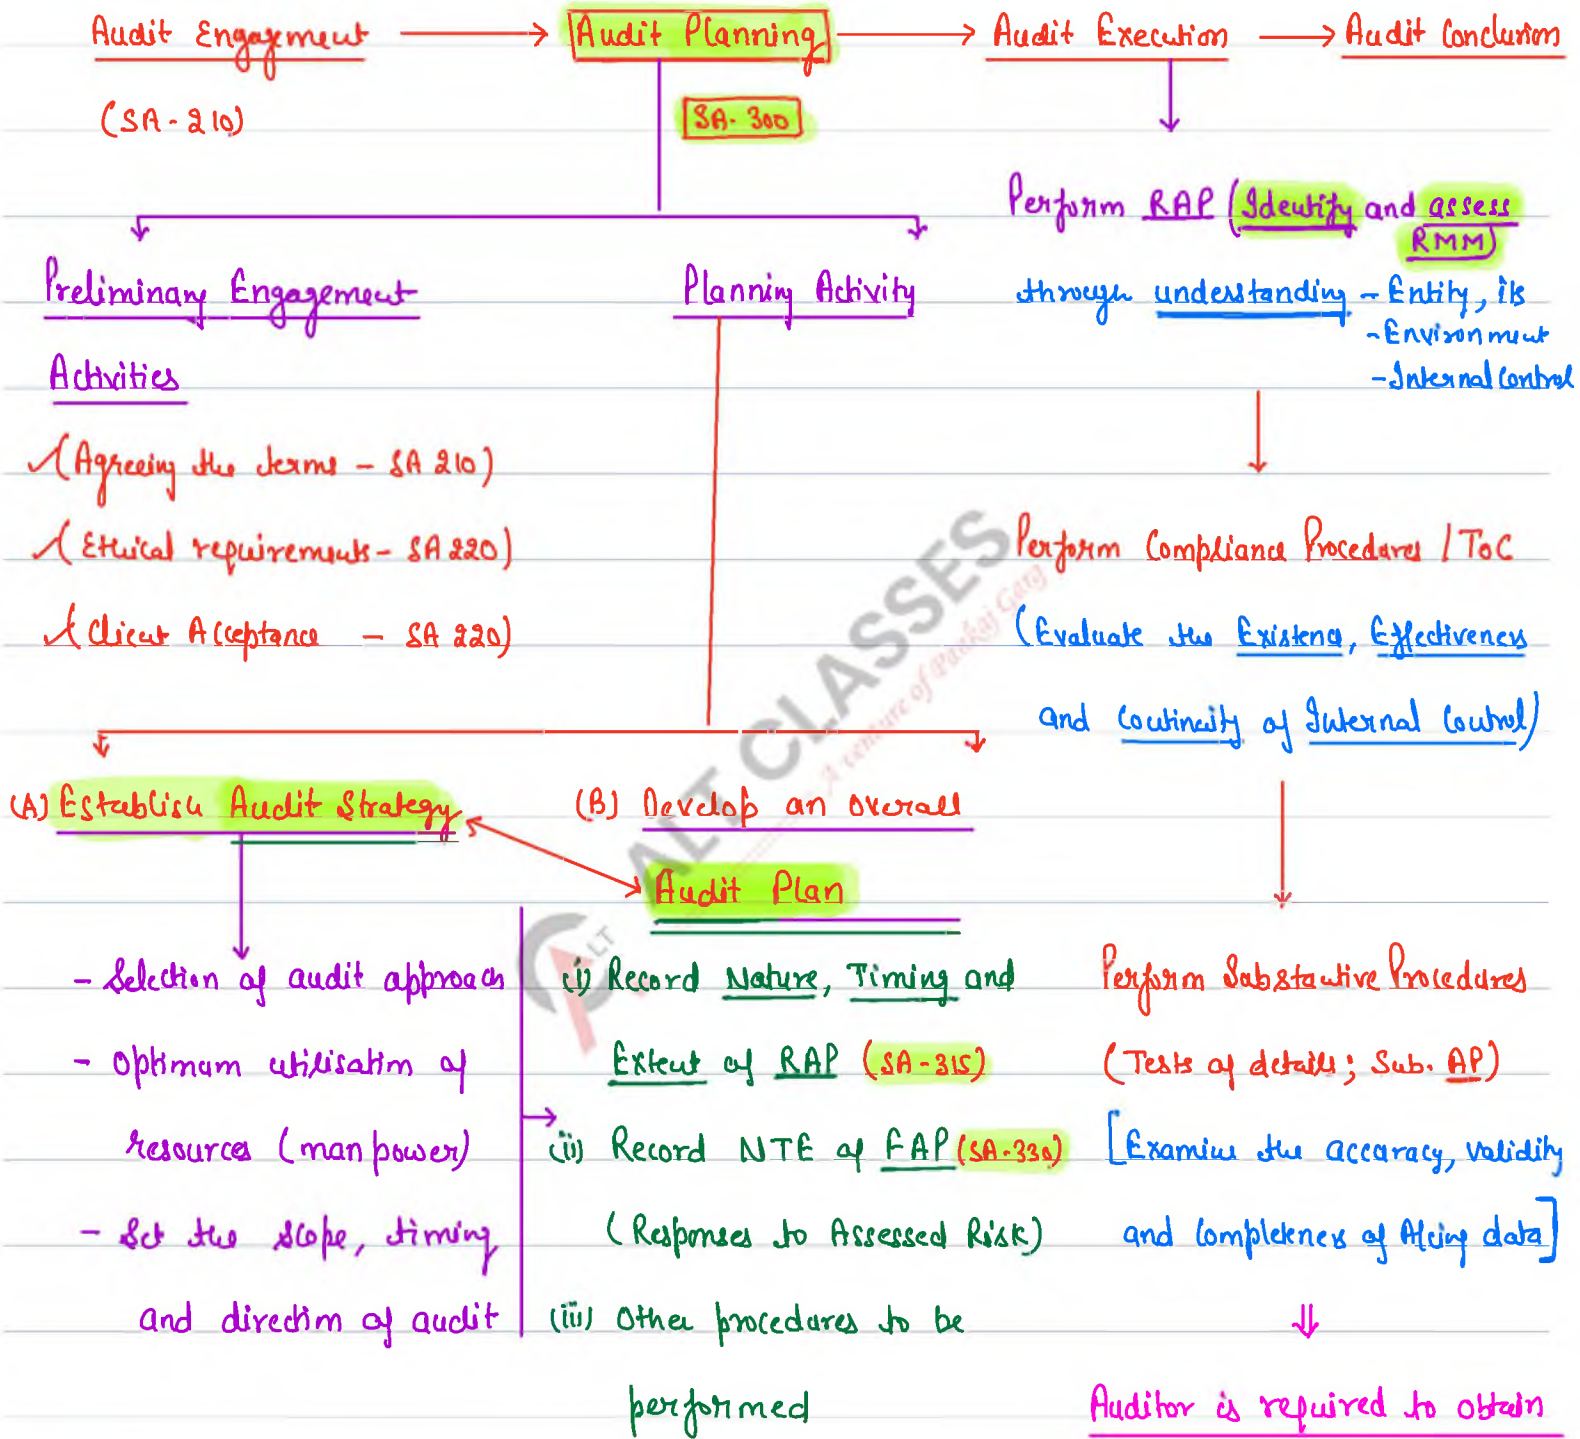 Audit Engagement → Audit Planning → Audit Execution → Audit Conclusion
(SA-210)
SA-300
Preliminary Engagement
Activities
(Agreeing the terms - SA 210)
(Ethical requirements - SA 220)
(Client Acceptance - SA 220)
Planning Activity
(A) Establish Audit Strategy
- Selection of audit approach
- Optimum utilisation of
resources (man power)
- Set the scope, timing
and direction of audit
(B) Develop an overall
Audit Plan
(i) Record Nature, Timing and
Extent of RAP (SA-315)
(ii) Record NTE of FAP (SA-330)
(Responses to Assessed Risk)
(iii) Other procedures to be
performed
Perform RAP (Identify and assess
RMM)
through understanding - Entity, its
- Environment
- Internal Control
Perform Compliance Procedures / ToC
(Evaluate the Existence, Effectiveness
and Continuity of Internal Control)
Perform Substantive Procedures
(Tests of details; Sub. AP)
[Examine the accuracy, validity
and Completeness of A/cing data]
⇓
Auditor is required to obtain
ALT CLASSES
A venture of Pankaj Garg
ALT